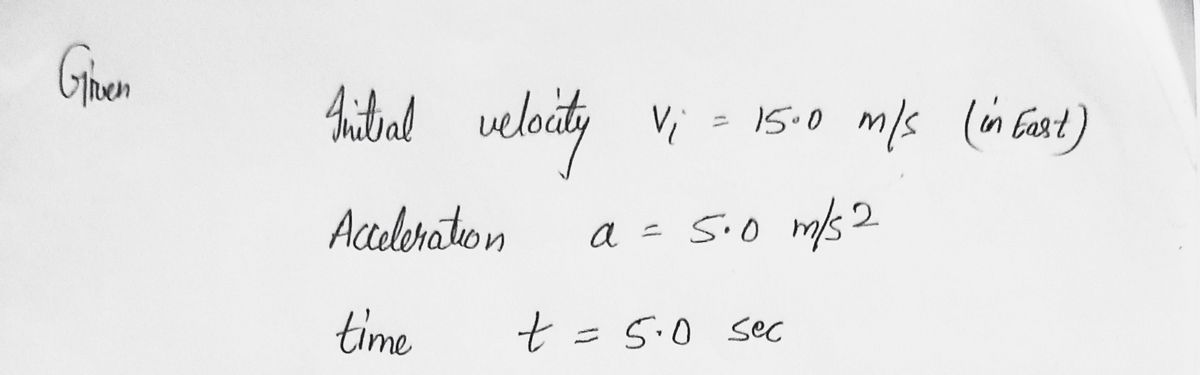 Given
Initial velocity Vi = 15.0 m/s (in East)
Acceleration a = 5.0 m/s2
time t = 5.0 sec